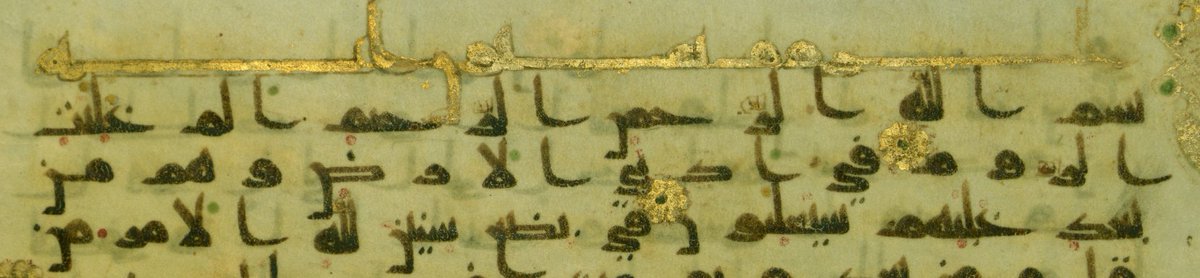 بسم الله الرحمن الرحيم الم غلبت
الروم في ادنى الارض وهم من
بعد غلبهم سيغلبون في بضع سنين لله الامر من